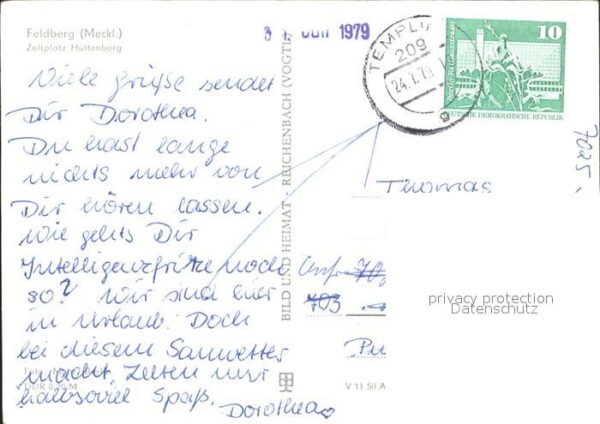 Feldberg (Meckl.)
Zeltplatz Hüttenberg
31. Juli 1979
TEMPLIN
209
24.7.79
a
10
DEUTSCHE DEMOKRATISCHE REPUBLIK
7025
Viele Grüße sendet
Dir Dorothea.
Du hast lange
nichts mehr von
Dir hören lassen.
Wie gehts Dir
Intelligenzfritze noch
so? Wir sind hier
in Urlaub. Doch
bei diesem Sauwetter
macht Zelten nur
halbsoviel Spaß.
Dorothea
BILD UND HEIMAT · REICHENBACH (VOGTL
Thomas
703
privacy protection
Datenschutz
DDR
M
V 11 50 A